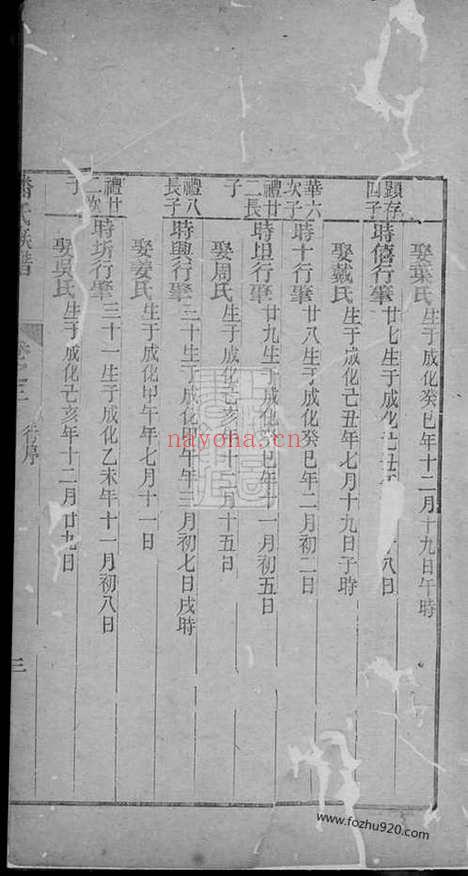 娶葉氏生于成化癸巳年十二月十九日午時
顕存四子 時僖行肇廿七生于成化己丑 十八日
娶戴氏生于成化己丑年七月十九日子時
華六次子 時十行肇廿八生于成化癸巳年二月初二日
禮廿二長子 時坦行肇廿九生于成化癸巳年十一月初五日
娶周氏生于成化己亥年十 月十五日
禮八長子 時興行肇三十生于成化甲午年三月初七日戌時
娶姜氏生于成化甲午年七月十一日
禮廿二次子 時圻行肇三十一生于成化乙未年十一月初八日
娶吳氏生于成化己亥年十二月廿九日
潘氏族譜 卷之三 行序 三
nayona.cn
www.fozhu920.com